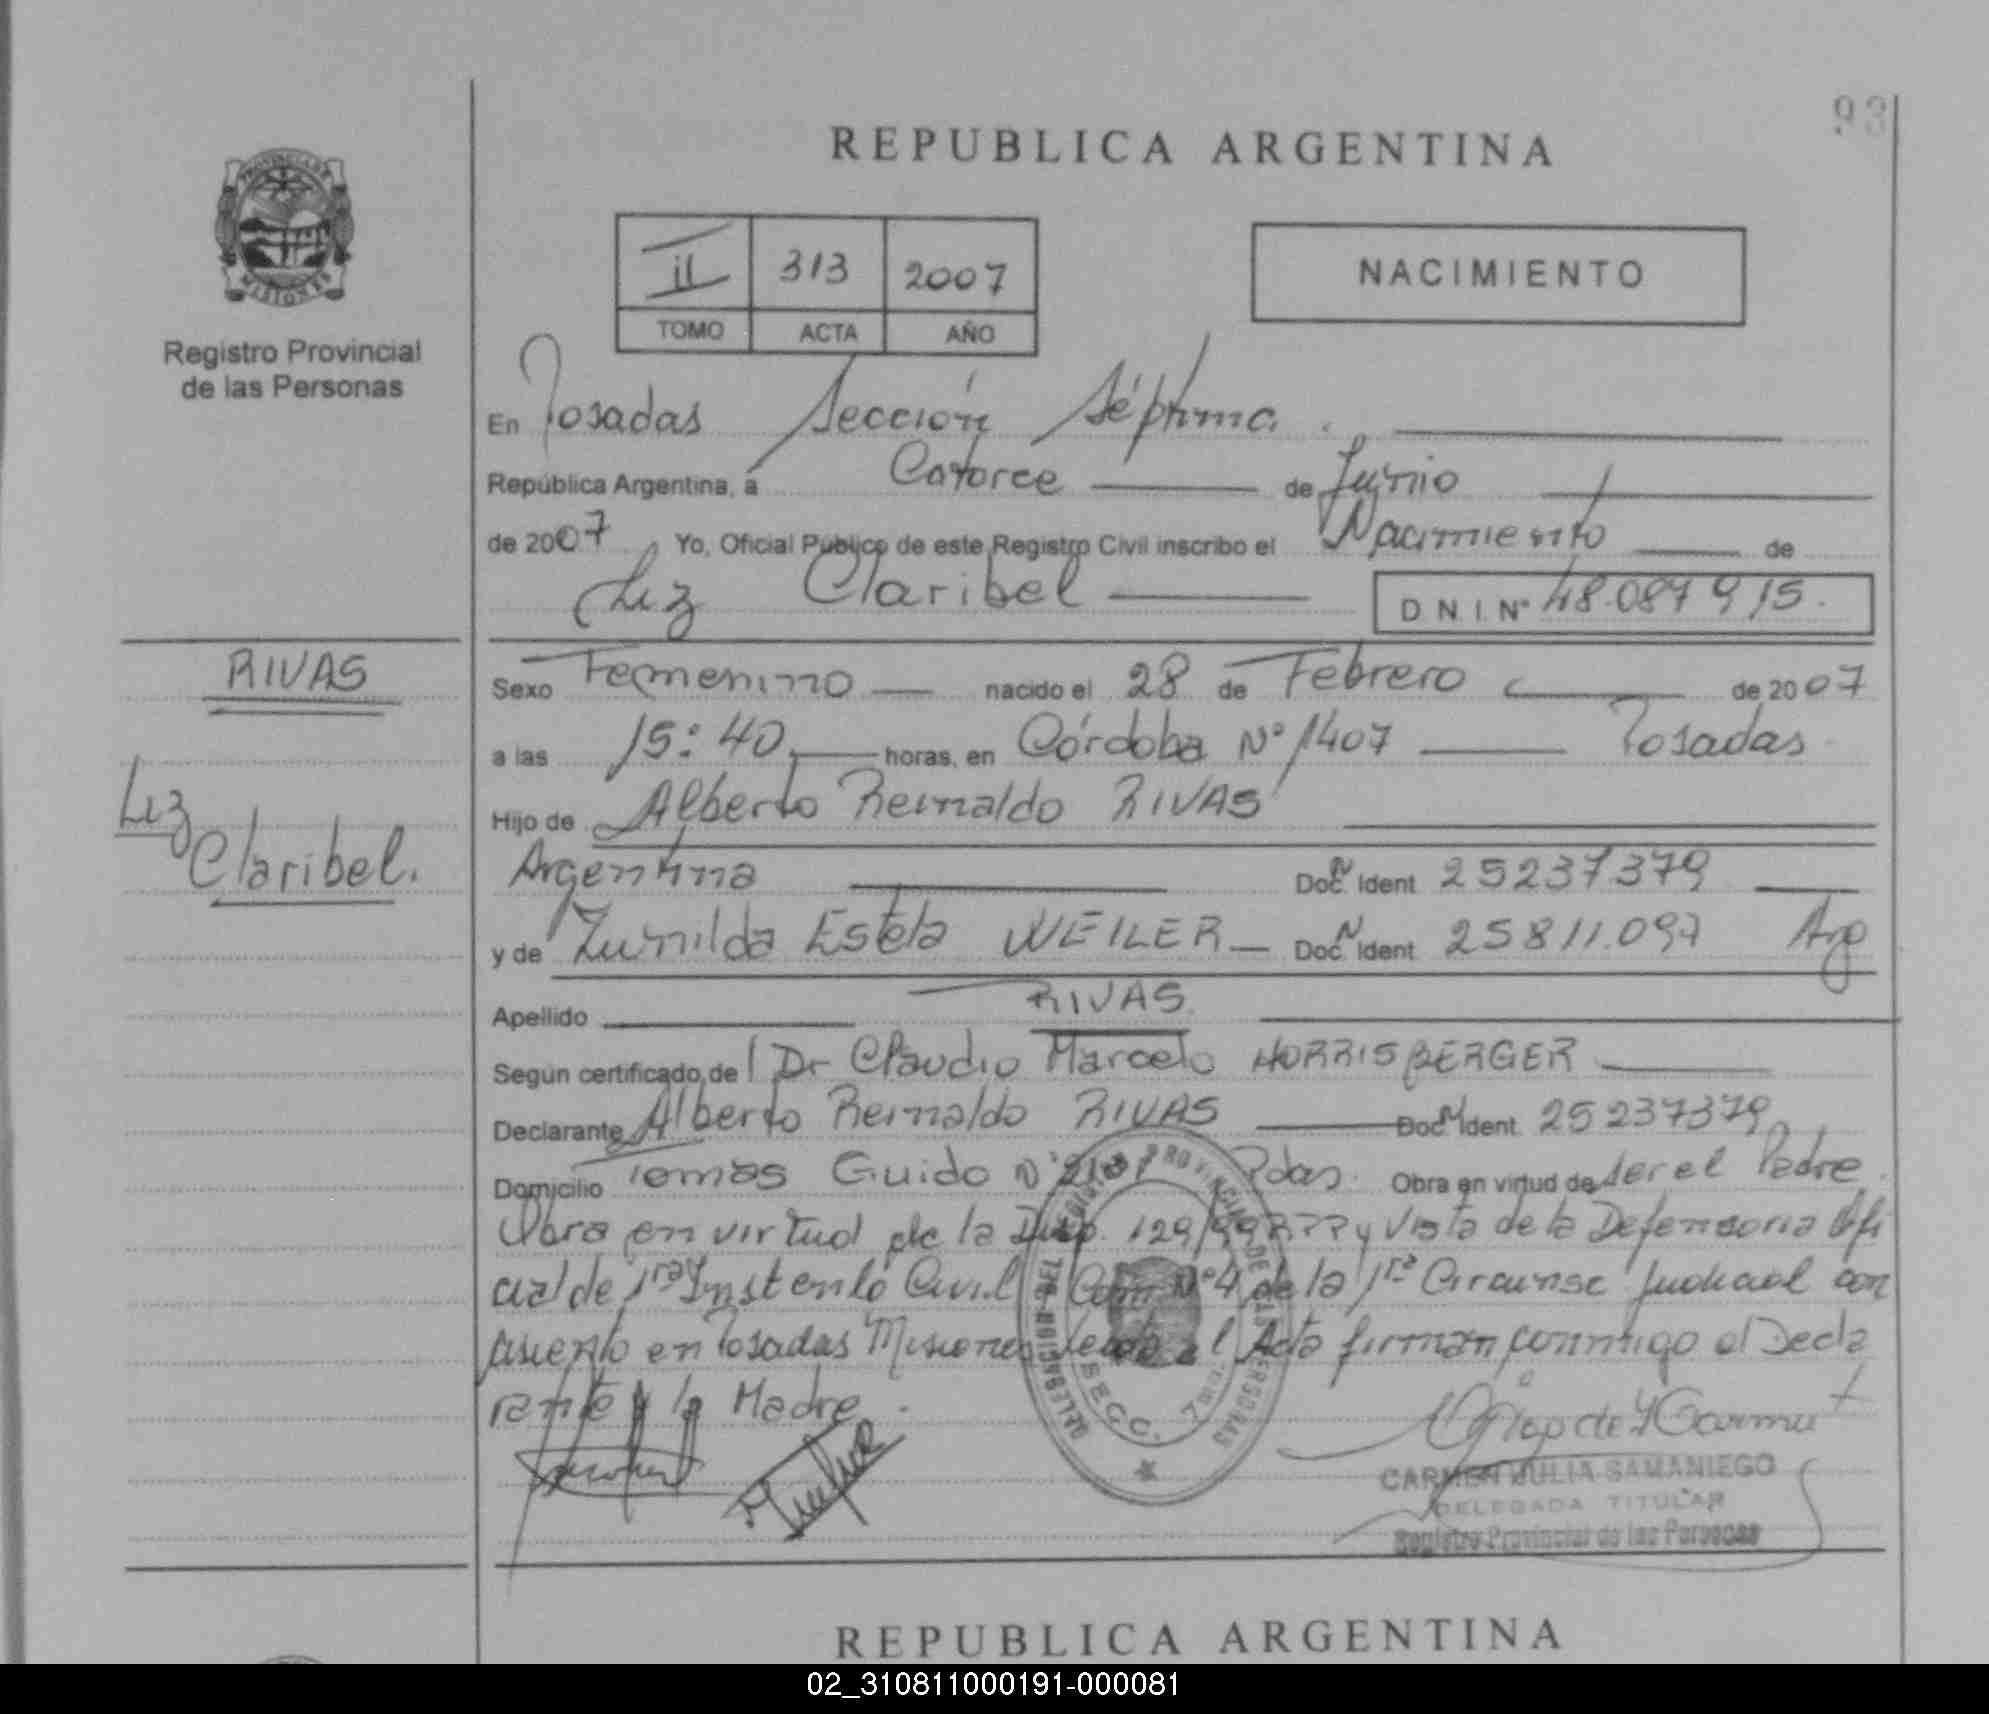 93
REPUBLICA ARGENTINA
PROVINCIA DE
MISIONES
Registro Provincial
de las Personas
II 313 2007
TOMO ACTA AÑO
NACIMIENTO
En Posadas Sección Séptima.
República Argentina, a Catorce de Junio
de 2007 Yo, Oficial Público de este Registro Civil inscribo el Nacimiento de
Luz Claribel D N I. N° 48.087 915.
RIVAS
Luz
Claribel.
Sexo Femenino nacido el 28 de Febrero de 2007
a las 15:40 horas, en Córdoba N° 1407 Posadas
Hijo de Alberto Reinaldo RIVAS
Argentina Doc. N Ident 25237379
y de Zunilda Estela WEILER Doc. N Ident 25811.097 Arg
Apellido RIVAS
Segun certificado de l Dr Claudio Marcelo HORRISBERGER
Declarante Alberto Reinaldo RIVAS Doc. N Ident. 25237379
Domicilio Tomas Guido N° Pdas. Obra en virtud de ser el Padre.
Obra en virtud de la Disp. 129/99 RPP y Vista de la Defensoria Ofi
cial de 1ra Inst en lo Civil y Com N° 4 de la 1ra Circunsc Judicial con
asiento en Posadas Misiones Leida el Acta firman conmigo el Decla
rante y la Madre.
DELEGACION DEL REGISTRO PROVINCIAL DE LAS PERSONAS
SECC. 7
CARMEN JULIA SAMANIEGO
DELEGADA TITULAR
Registro Provincial de las Personas
REPUBLICA ARGENTINA
02_310811000191-000081